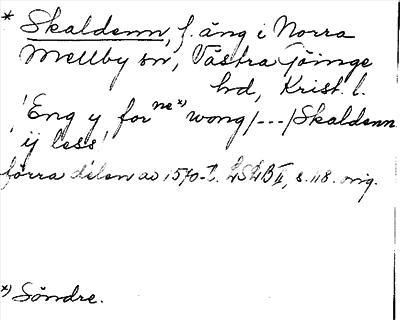 * Skaldenn, f. äng i Norra
Mellby sn, Västra Göinge
hd, Krist. l.
'Eng y for ne x) wong /---/ Skaldenn
ij less'
förra delen av 1570-t. LSkB II, s. 118. orig.
x) Söndre.